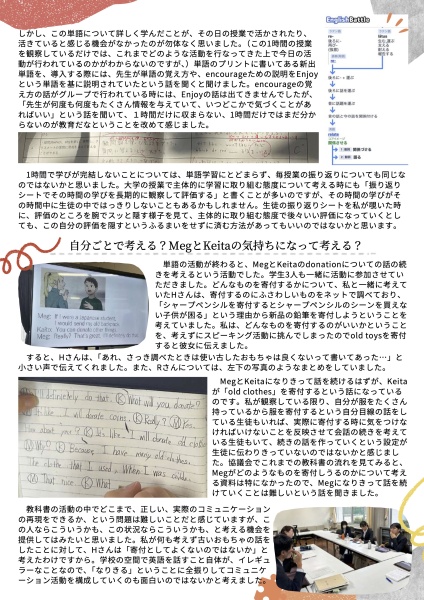 しかし、この単語について詳しく学んだことが、その日の授業で活かされたり、
活きていると感じる機会がなかったのが勿体なく思いました。（この1時間の授業
を観察しているだけでは、これまでどのような活動を行なってきた上で今日の活
動が行われているのかがわからないのですが、）単語のプリントに書いてある新出
単語を、導入する際には、先生が単語の覚え方や、encourageための説明をEnjoy
という単語を基に説明されていたという話を聞くと聞けました。encourageの覚
え方の話がグループで行われている時には、Enjoyの話は出てきませんでしたが、
「先生が何度も何度もたくさん情報を与えていて、いつどこかで気づくことがあ
ればいい」という話を聞いて、１時間だけに収まらない、1時間だけではまだ分か
らないのが教育だなということを改めて感じました。
EnglishBattle
1時間で学びが完結しないことについては、単語学習にとどまらず、毎授業の振り返りについても同じな
のではないかと思いました。大学の授業で主体的に学習に取り組む態度について考える時にも「振り返り
シートでその時間の学びを長期的に観察して評価する」と書くことが多いのですが、その時間の学びがそ
の時間中に生徒の中ではっきりしないこともあるかもしれません。生徒の振り返りシートを私が覗いた時
に、評価のところを腕でスッと隠す様子を見て、主体的に取り組む態度で後々いい評価になっていくとし
ても、この自分の評価を隠すというふるまいをせずに済む方法があってもいいのではないかと思います。
自分ごとで考える？MegとKeitaの気持ちになって考える？
単語の活動が終わると、MegとKeitaのdonationについての話の続
きを考えるという活動でした。学生3人も一緒に活動に参加させてい
ただきました。どんなものを寄付するかについて、私と一緒に考えて
いたHさんは、寄付するのにふさわしいものをネットで調べており、
「シャープペンシルを寄付するとシャープペンシルのシーンを買えな
い子供が困る」という理由から新品の鉛筆を寄付しようということを
考えていました。私は、どんなものを寄付するのがいいかということ
を、考えずにスピーキング活動に挑んでしまったのでold toysを寄付
すると彼女に伝えました。
すると、Hさんは、「あれ、さっき調べたときは使い古したおもちゃは良くないって書いてあった…」と
小さい声で伝えてくれました。また、Rさんについては、左下の写真のようなまとめをしていました。
MegとKeitaになりきって話を続けるはずが、Keita
が「old clothes」を寄付するという話になっている
のです。私が観察している限り、自分が服をたくさん
持っているから服を寄付するという自分目線の話をし
ている生徒もいれば、実際に寄付する時に気をつけな
ければいけないことを反映させて会話の続きを考えて
いる生徒もいて、続きの話を作っていくという設定が
生徒に伝わりきっていないのではないかと感じまし
た。協議会でこれまでの教科書の流れを見てみると、
Megがどのようなものを寄付しうるのかについて考え
る資料は特になかったので、Megになりきって話を続
けていくことは難しいという話を聞きました。
教科書の活動の中でどこまで、正しい、実際のコミュニケーション
の再現をできるか、という問題は難しいことだと感じていますが、こ
の人ならこういうかも、この状況ならこういうかも、と考える機会を
提供してはみたいと思いました。私が何も考えず古いおもちゃの話を
したことに対して、Hさんは「寄付としてよくないのではないか」と
考えたわけですから。学校の空間で英語を話すこと自体が、イレギュ
ラーなことなので、「なりきる」ということに全振りしてコミュニケ
ーション活動を構成していくのも面白いのではないかと考えました。